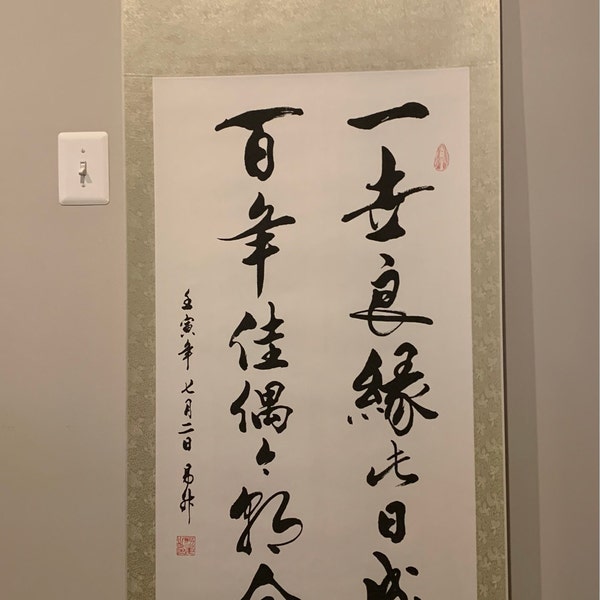 一世良緣此日成
百年佳偶今朝合
壬寅年 七月二日